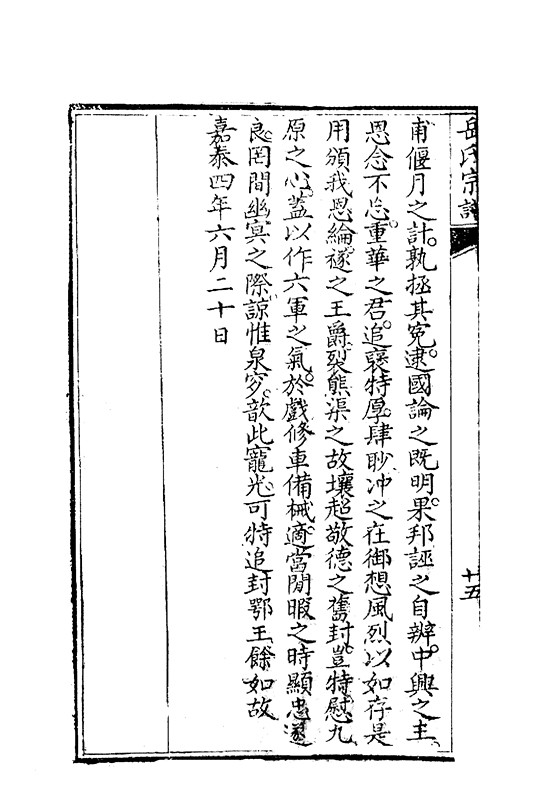 岳氏宗譜
十五
甫偃月之計孰拯其寃逮國論之既明果邦誣之自辨中興之主
恩念不忘重華之君追襃特厚肆眇沖之在御想風烈以如存是
用頒我恩綸禭之王爵裂熊渠之故壤超敬德之舊封豈特慰九
原之心蓋以作六軍之氣於戲修車備械適當閒暇之時顯忠遂
良罔間幽冥之際諒惟泉穸歆此寵光可特追封鄂王餘如故
嘉泰四年六月二十日